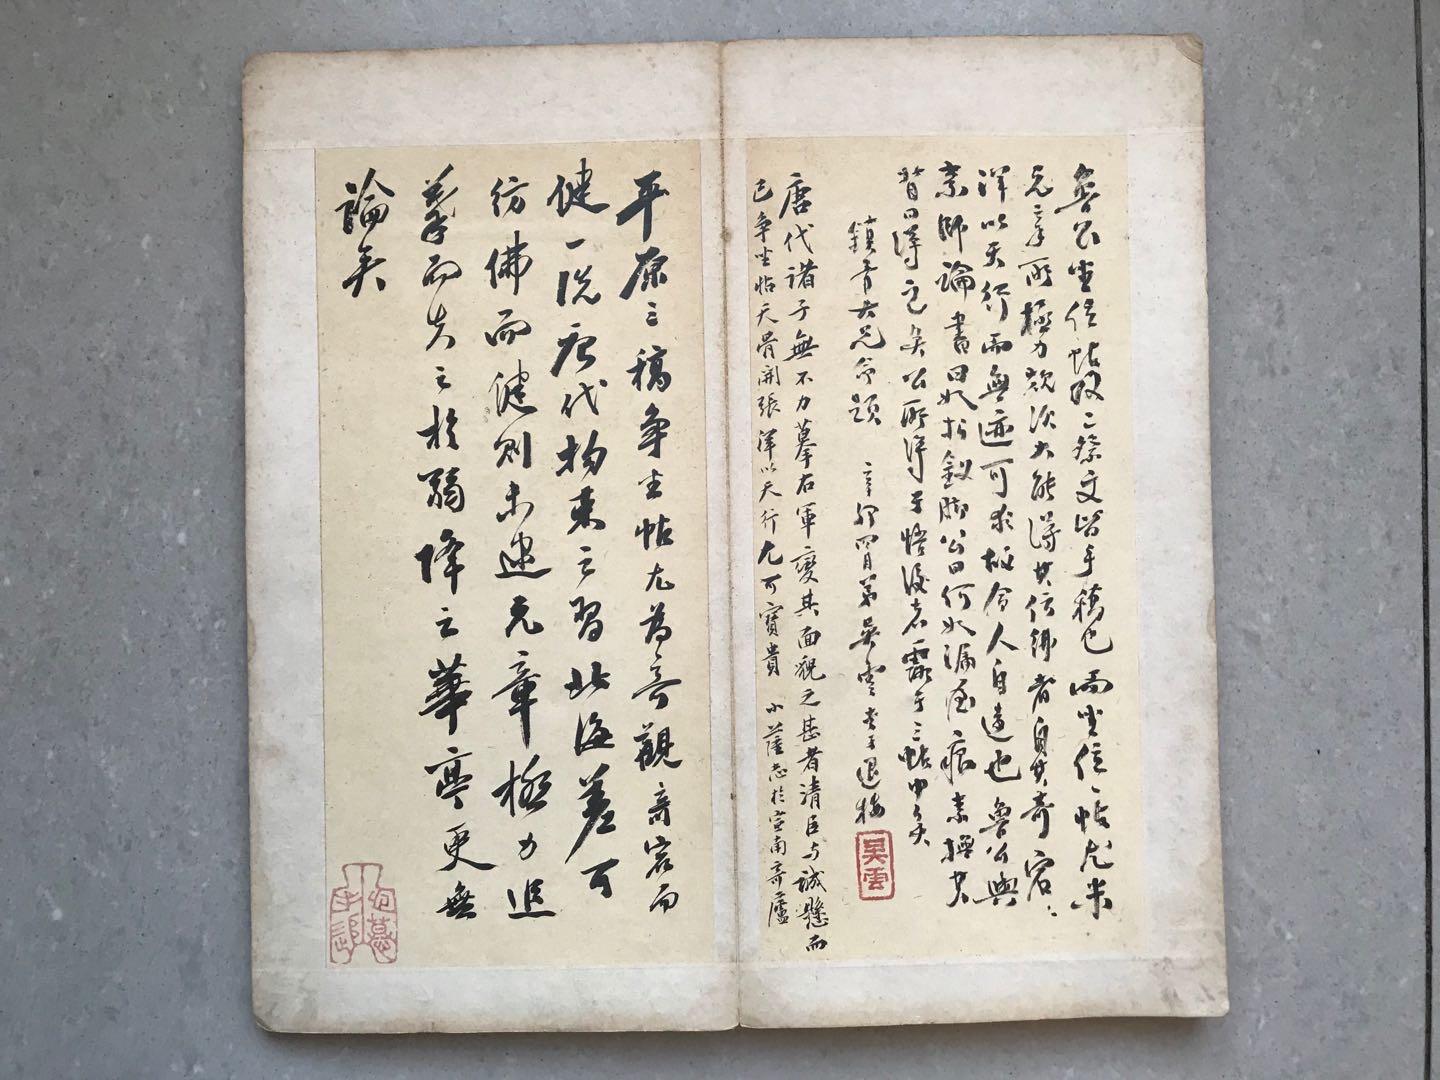 魯公坐位帖與二祭文皆手稿也而坐位帖尤米
元章所極力歎汲尤能得其佐鄉者自其奇宕
渾以天行而無迹可求極令人自遠也魯公與
素師論書曰如折釵脚公曰何如漏屋痕素握其
背曰得之矣公所得于悟後者露于三帖中矣
鎮青大兄命題
辛卯四月弟吳雲書于退樓
吳雲
唐代諸子無不力摹右軍變其面貌之甚者清臣与誠懸而
已争坐帖天骨開張渾以天行尤可寶貴
小薩志於宣南寄廬
平原三稿争坐帖尤為奇觀奇宕而
健一洗唐代拘束之習北海差可
彷彿而健則未逮元章極力追
摹而失之於弱降之華亭更無
論矣